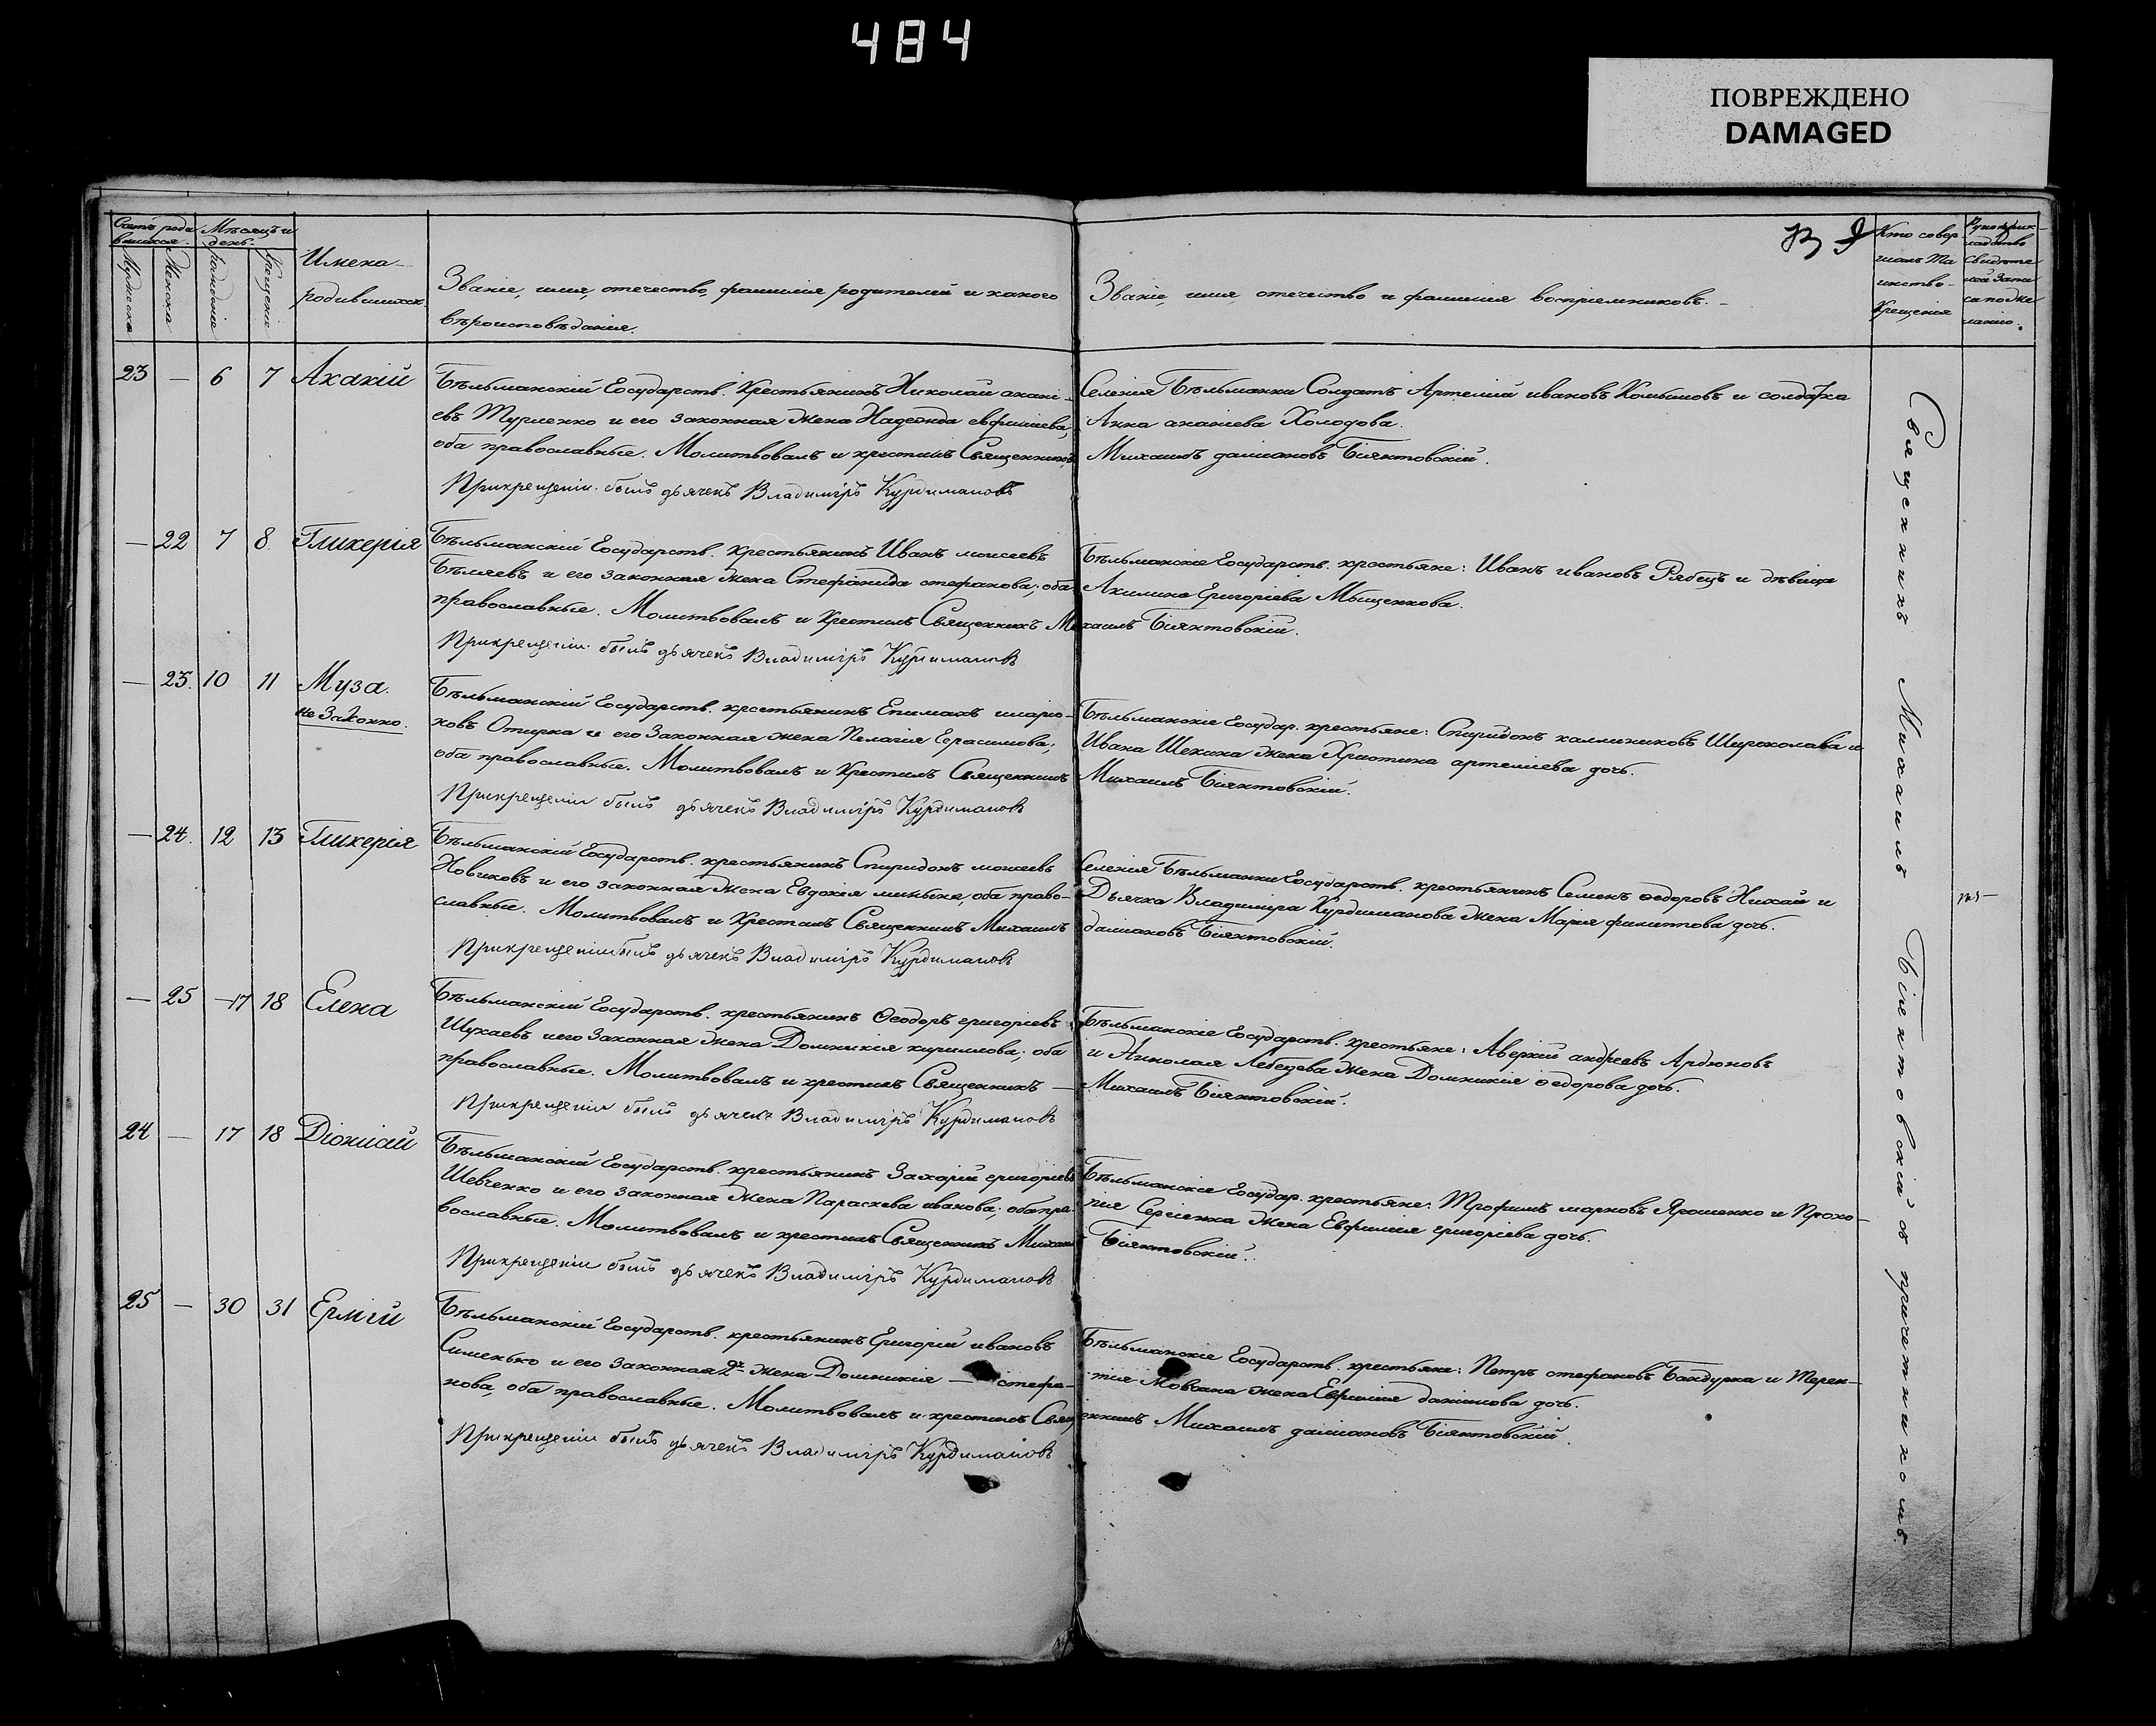 484
ПОВРЕЖДЕНО
DAMAGED
Счетъ роди
вшихся.
Мѣсяцъ и
день.
Мужеска
Женска
рожденія
Крещенія
Имена
родившихся.
Званіе, имя, отечество, фамилія родителей и какого
вѣроисповѣданія.
Званіе, имя отечество и фамилія воспріемниковъ.
Кто совер
шалъ Та
инство
Крещенія
Рукоприк
ладство
свидѣте
лей запи
си по же
ланію.
23 — 6 7 Акакій
Бѣльманскій Государств. Крестьянинъ Николай анані-
евъ Турченко и его законная жена Надежда евфиміева,
оба православные. Молитвовалъ и крестилъ Священникъ
Прикрещеніи былъ дьячекъ Владиміръ Курдимановъ
Селенія Бѣльманки Солдатъ Артемій ивановъ и солдатка
Анна ананіева Холодова.
Михаилъ даміановъ Біянтовскій.
— 22 7 8 Гликерія
Бѣльманскій Государств. крестьянинъ Иванъ моисеевъ
Бѣляевъ и его законная жена Стефанида стефанова; оба
православные. Молитвовалъ и Крестилъ Священникъ Ми
Прикрещеніи былъ дьячекъ Владиміръ Курдимановъ
Бѣльманскіе Государств. крестьяне: Иванъ ивановъ Рябецъ и дѣвица
Акилина Григоріева Мыщенкова.
хаилъ Біянтовскій.
— 23. 10 11 Муза.
не Законно.
Бѣльманскій Государств. крестьянинъ Епимахъ иларіо-
новъ Отирка и его Законная жена Пелагія Герасимова,
оба православные. Молитвовалъ и Крестилъ Священникъ
Прикрещеніи былъ дьячекъ Владиміръ Курдимановъ
Бѣльманскіе Государ. крестьяне: Спиридонъ каллиниковъ Широколава и
Ивана Щекина жена Христина артеміева дочь.
Михаилъ Біянтовскій.
— 24. 12 13 Гликерія
Бѣльманскій Государств. крестьянинъ Спиридонъ моисеевъ
Новиковъ и его законная жена Евдокія миньена, оба право-
славные. Молитвовалъ и Крестилъ Священникъ Михаилъ
Прикрещеніи былъ дьячекъ Владиміръ Курдимановъ
Селенія Бѣльманки Государств. крестьянинъ Семенъ ѳедоровъ Нихай и
Дьячка Владиміра Курдиманова жена Марія филиппова дочь.
даміановъ Біянтовскій.
— 25 — 17 18 Елена
Бѣльманскій Государств. крестьянинъ Ѳеодоръ григоріевъ
Шукаевъ и его Законная жена Домникія кириллова; оба
православные. Молитвовалъ и крестилъ Священникъ —
Прикрещеніи былъ дьячекъ Владиміръ Курдимановъ
Бѣльманскіе Государств. крестьяне: Аверкій андреевъ Ардюновъ
и Николая Лебедева жена Домникія ѳедорова дочь.
Михаилъ Біянтовскій.
24 — 17 18 Діонисій
Бѣльманскій Государств. крестьянинъ Захарій григоріевъ
Шевченко и его законная жена Параскева иванова; оба пра
вославные. Молитвовалъ и крестилъ Священникъ Михаилъ
Прикрещеніи былъ дьячекъ Владиміръ Курдимановъ
Бѣльманскіе Государ. крестьяне: Трофимъ марковъ Ярошенко и Проко-
пія Сергіенка жена Евфимія григоріева дочь.
Біянтовскій.
25 — 30 31 Ермій
Бѣльманскій Государств. крестьянинъ Григорій ивановъ
Сименько и его законная 2я жена Домникія — стефа-
нова, оба православные. Молитвовалъ и крестилъ Свящ
Прикрещеніи былъ дьячекъ Владиміръ Курдимановъ
Бѣльманскіе Государств. крестьяне: Петръ стефановъ Бандурка и Терен-
тія Мовчана жена Евфимія даніилова дочь.
енникъ Михаилъ даміановъ Біянтовскій.
Священникъ Михаилъ Біянтовскій съ причетникомъ.